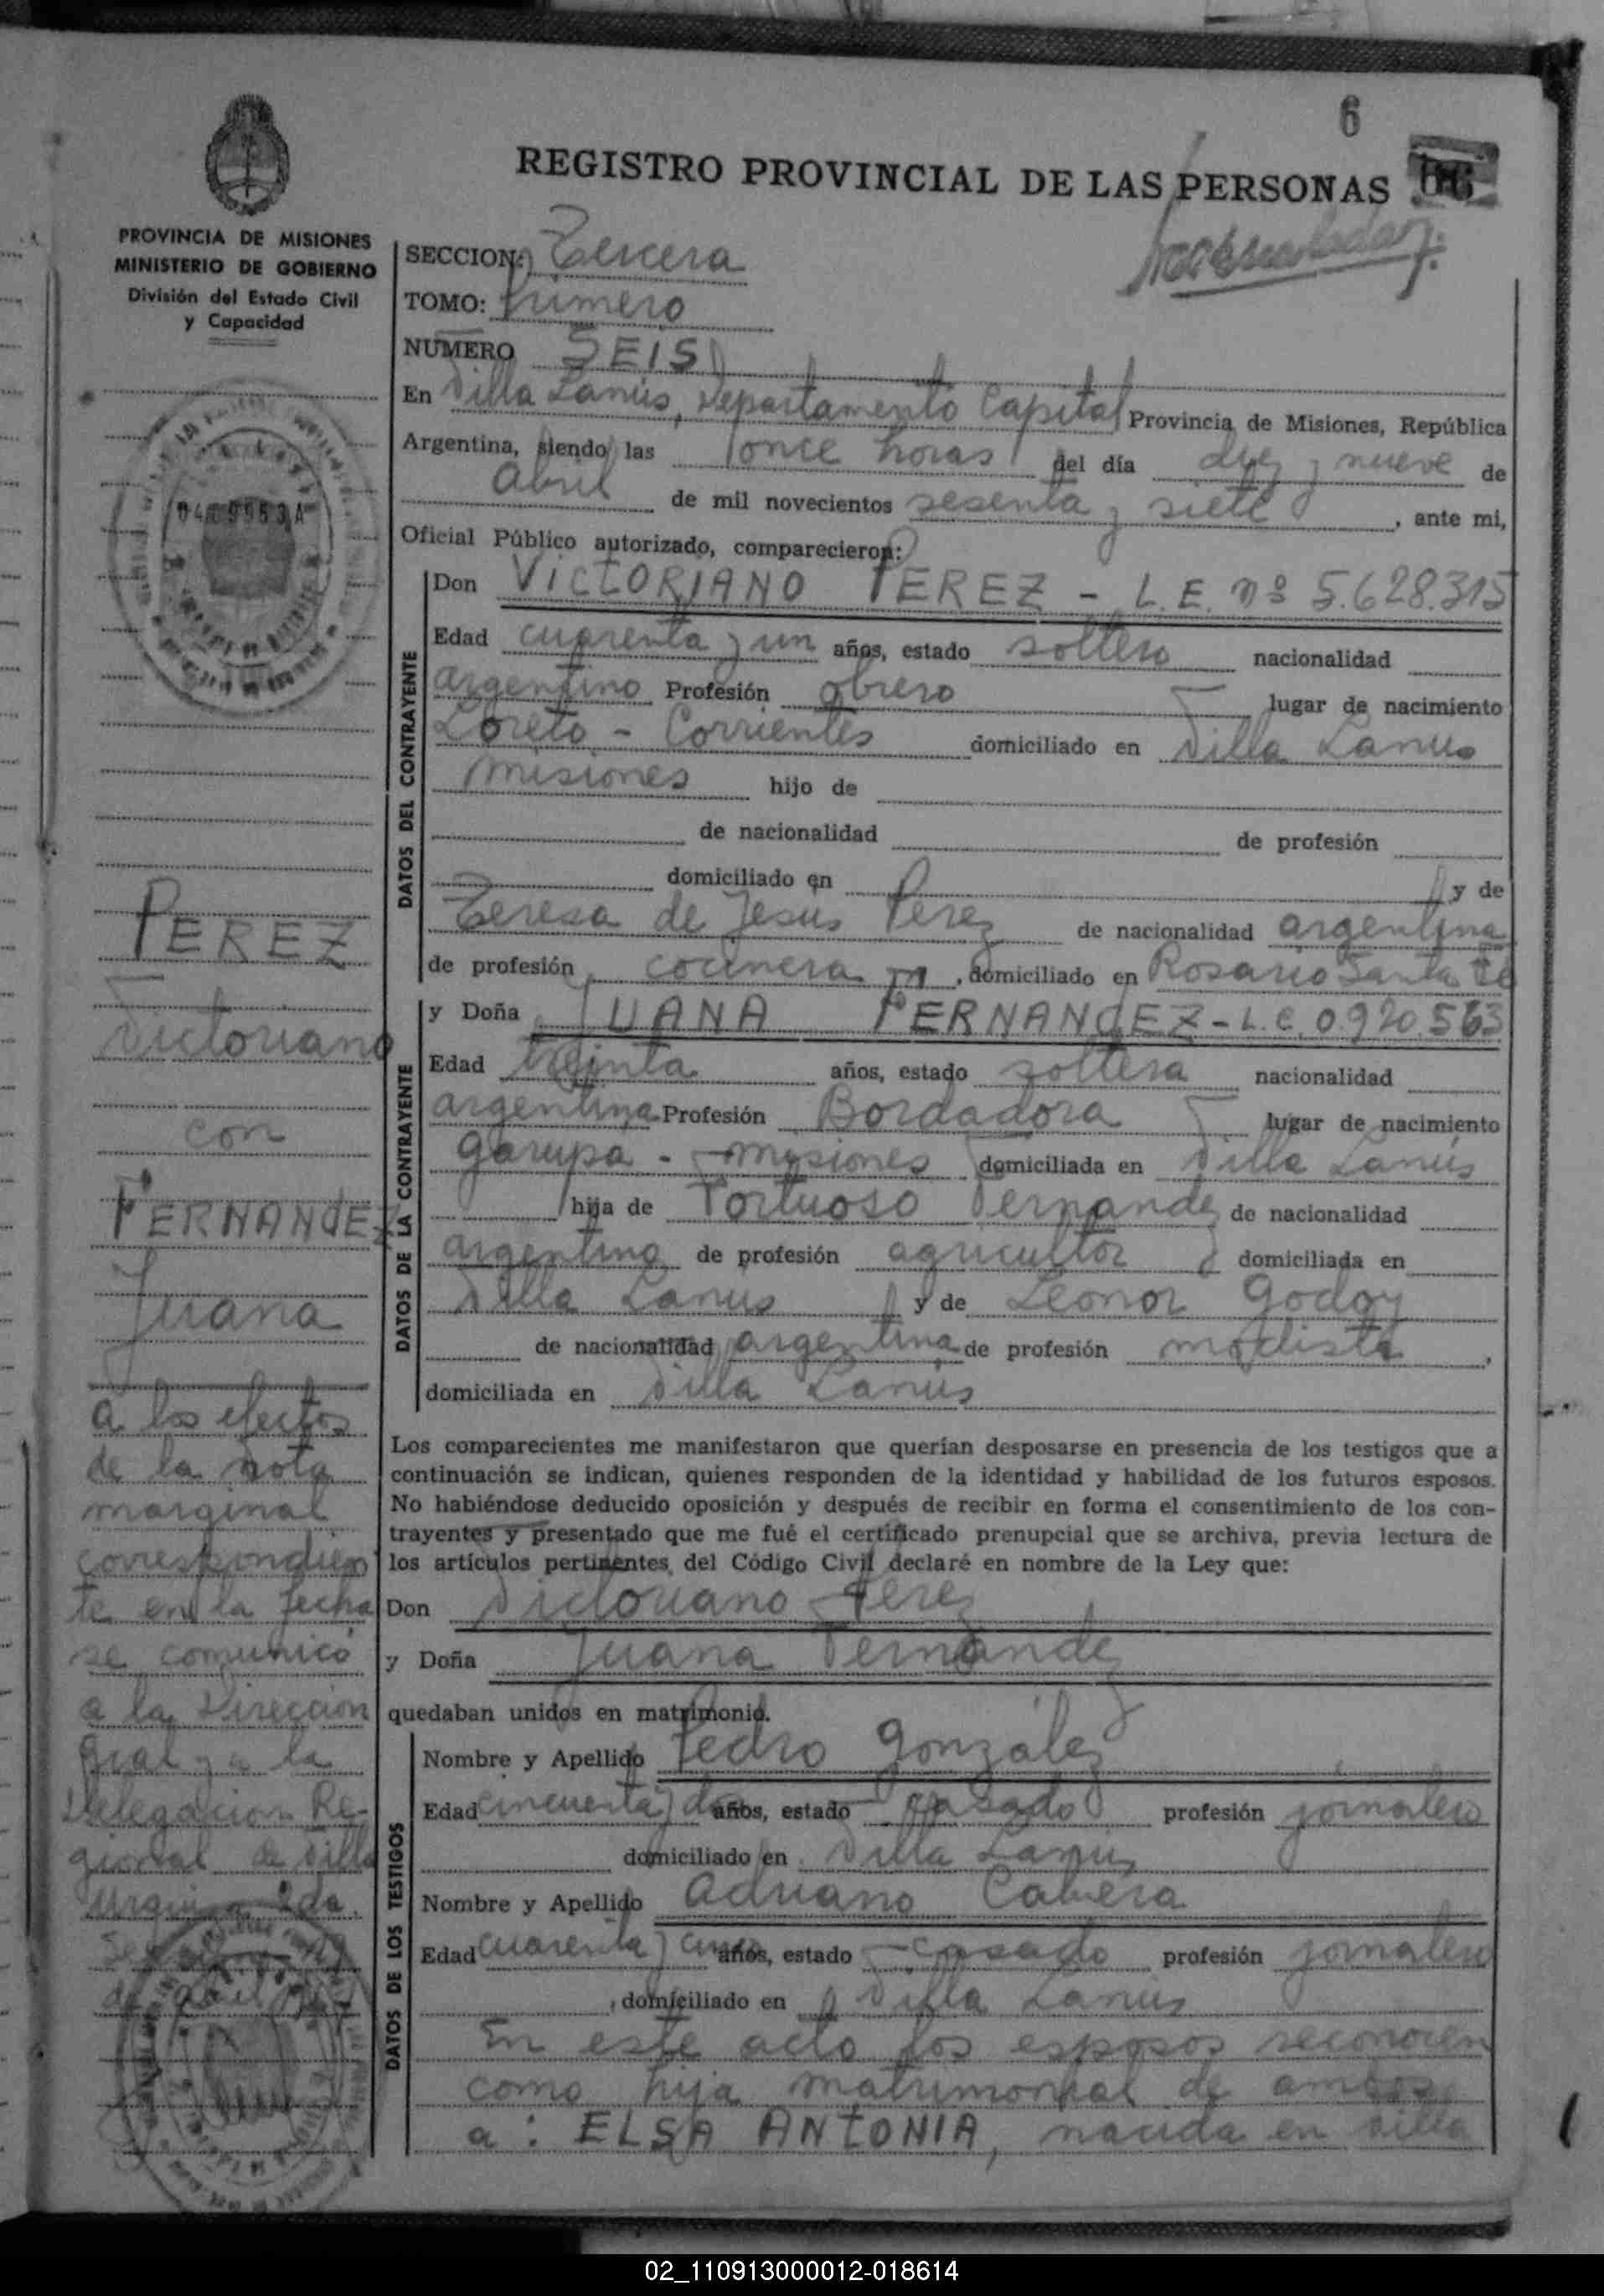 6
REGISTRO PROVINCIAL DE LAS PERSONAS
PROVINCIA DE MISIONES
MINISTERIO DE GOBIERNO
División del Estado Civil
y Capacidad
SECCION: Tercera
TOMO: Primero
NUMERO SEIS
En Villa Lanús, Departamento Capital Provincia de Misiones, República
Argentina, siendo las once horas del día diez y nueve de
Abril de mil novecientos sesenta y siete, ante mi,
Oficial Público autorizado, comparecieron:
DATOS DEL CONTRAYENTE
Don VICTORIANO PEREZ - L.E. nº 5.628.315
Edad cuarenta y un años, estado soltero nacionalidad
argentino Profesión obrero lugar de nacimiento
Loreto - Corrientes domiciliado en Villa Lanus
Misiones hijo de
de nacionalidad de profesión
domiciliado en y de
Teresa de Jesus Perez de nacionalidad argentina
de profesión cocinera, domiciliado en Rosario Santa Fé
DATOS DE LA CONTRAYENTE
y Doña JUANA FERNANDEZ - L.C. 0.920.563
Edad treinta años, estado soltera nacionalidad
argentina Profesión Bordadora lugar de nacimiento
Garupa - Misiones domiciliada en Villa Lanús
hija de Tortuoso Fernandez de nacionalidad
argentino de profesión agricultor domiciliada en
Villa Lanus y de Leonor Godoy
de nacionalidad argentina de profesión modista,
domiciliada en Villa Lanús
Los comparecientes me manifestaron que querían desposarse en presencia de los testigos que a
continuación se indican, quienes responden de la identidad y habilidad de los futuros esposos.
No habiéndose deducido oposición y después de recibir en forma el consentimiento de los con-
trayentes y presentado que me fué el certificado prenupcial que se archiva, previa lectura de
los artículos pertinentes del Código Civil declaré en nombre de la Ley que:
Don Victoriano Perez
y Doña Juana Fernandez
quedaban unidos en matrimonio.
DATOS DE LOS TESTIGOS
Nombre y Apellido Pedro Gonzalez
Edad cincuenta y dos años, estado casado profesión jornalero
domiciliado en Villa Lanús
Nombre y Apellido Adriano Cabrera
Edad cuarenta y cinco años, estado casado profesión jornalero
, domiciliado en Villa Lanus
En este acto los esposos reconocen
como hija matrimonial de ambos
a: ELSA ANTONIA, nacida en Villa
PEREZ
Victoriano
con
FERNANDEZ
Juana
a los efectos
de la nota
marginal
correspondien
te en la fecha
se comunicó
a la Dirección
Gral y a la
Delegación Re-
gional de Villa
02_110913000012-018614